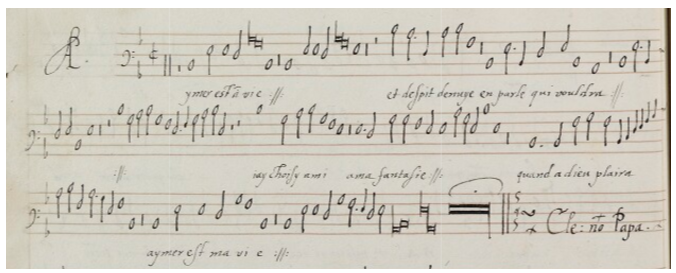 A.
ymer est ma vie :||: et despit denvye en parle qui vouldra :||:
:||: iay choisy ami a ma fantasie :||: quand a dieu plaira
Cle: nõ Papa.
aymer est ma vie :||: